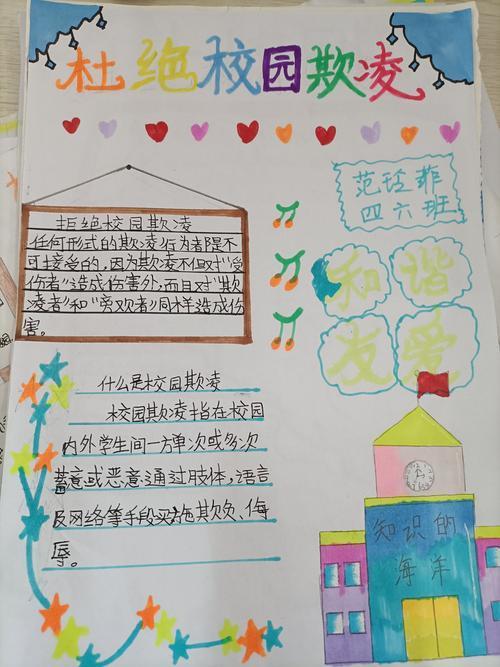 杜绝校园欺凌
范玲菲
四六班
拒绝校园欺凌
任何形式的欺凌行为都是不
可接受的,因为欺凌不但对“受
伤者”造成伤害外,而且对“欺
凌者”和“旁观者”同样造成伤
害。
和谐
友爱
什么是校园欺凌
校园欺凌指在校园
内外学生间一方单次或多次
蓄意或恶意通过肢体,语言
及网络等手段实施欺负、侮
辱。
知识的
海洋